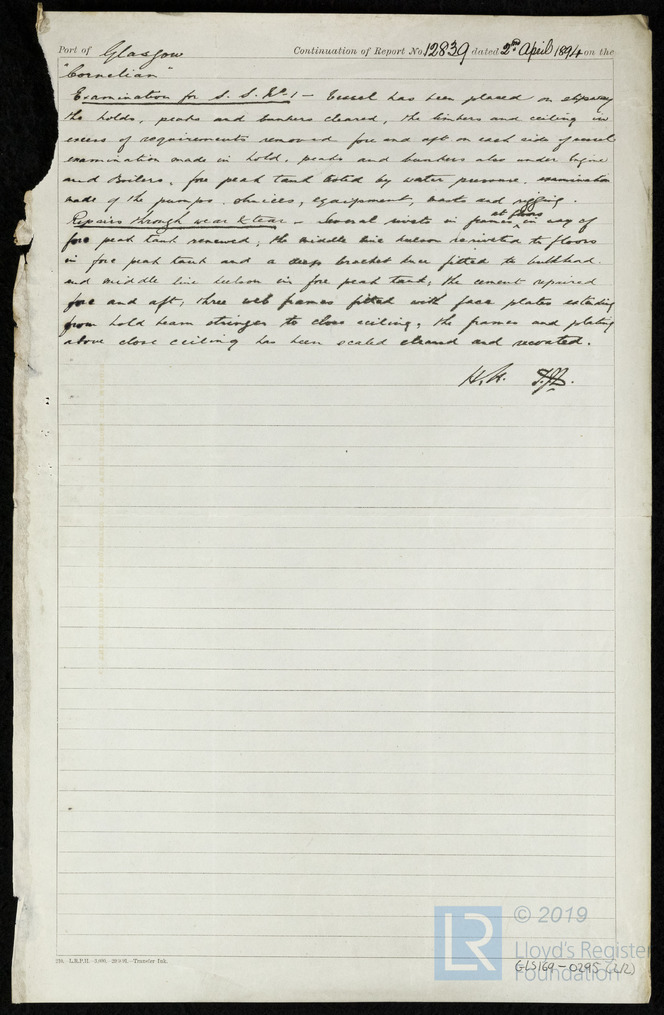 Port of Glasgow Continuation of Report No. 12839 dated 2nd April 1894 on the
"Cornelian"
Examination for S. S. No. 1 — Vessel has been placed on slipway
the holds, peaks and bunkers cleared, the limbers and ceiling in
excess of requirements removed fore and aft on each side of vessel
examination made in hold, peaks and bunkers also under Engine
and Boilers, fore peak tank tested by water pressure, examination
made of the pumps, sluices, equipment, masts and rigging.
Repairs through wear & tear — Several rivets in frames at floors in way of
fore peak tank renewed, the middle line keelson reriveted to floors
in fore peak tank and a deep bracket knee fitted to bulkhead
and middle line keelson in fore peak tank, the cement repaired
fore and aft, three web frames fitted with face plates extending
from hold beam stringer to close ceiling, the frames and plating
above close ceiling has been scaled cleaned and recoated.
H.K.
L.R.P.H. Transfer Ink.
LR
© 2019
Lloyd's Register
Foundation
GLS169-0295 (2/2)